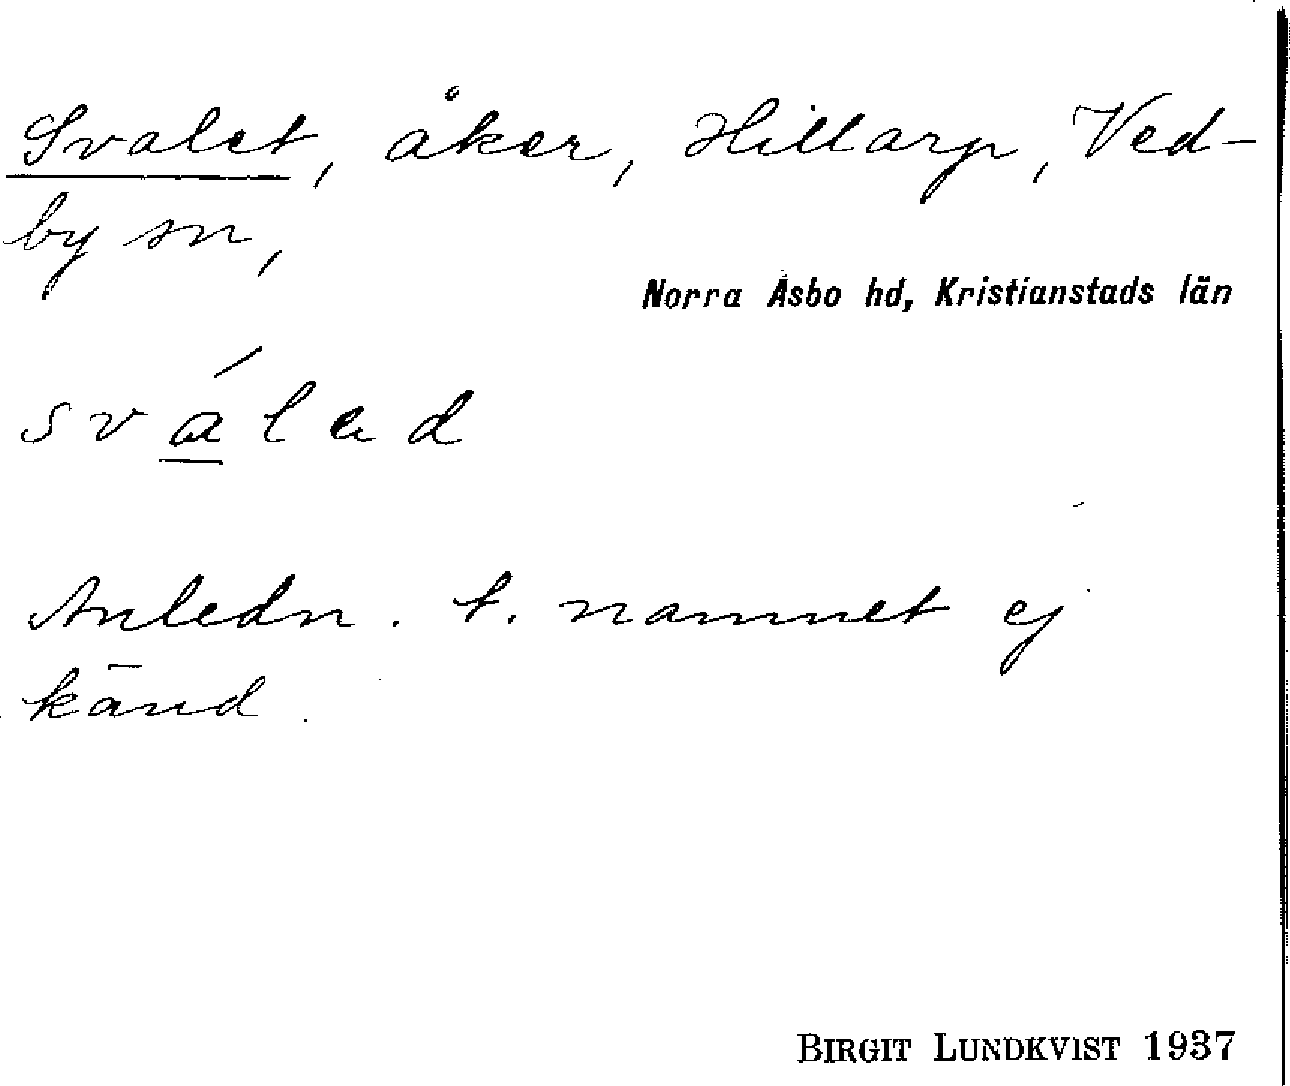 Svalet, åker, Hillarp, Ved-
by sn,
Norra Åsbo hd, Kristianstads län
svá̲lad
Anledn. t. namnet ej
känd.
BIRGIT LUNDKVIST 1937